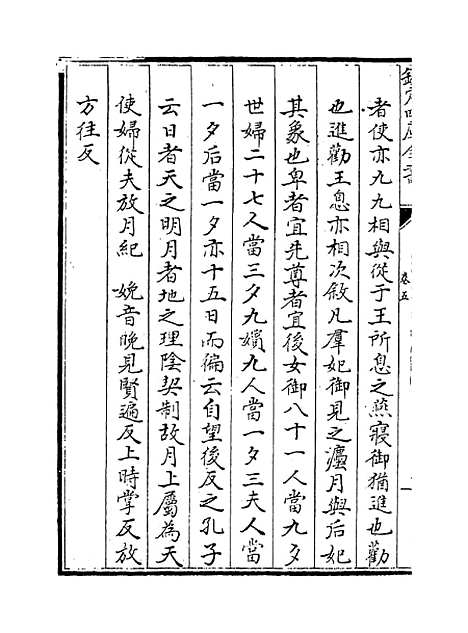 欽定四庫全書
卷五
者使亦九九相與從于王所息之燕寢御猶進也勸
也進勸王息亦相次敘凡羣妃御見之灋月與后妃
其象也卑者宜先尊者宜後女御八十一人當九夕
世婦二十七人當三夕九嬪九人當一夕三夫人當
一夕后當一夕亦十五日而徧云自望後反之孔子
云日者天之明月者地之理陰契制故月上屬為天
使婦從夫放月紀　娩音晚見賢遍反上時掌反放
方往反